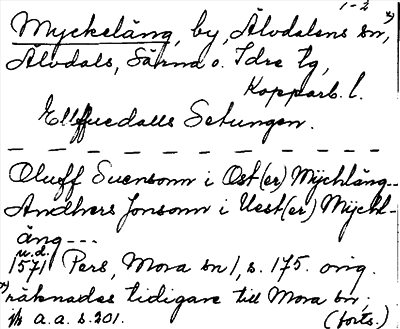 1-2
Myckeläng, by, Älvdalens sn, *)
Älvdals, Särna o. Idre tg,
Kopparb. l.
Elffuedalls Setungen.
Oluff Suensonn i Ost(er) Mÿchläng--
Andhers Jonsonn i Uest(er) Mÿchl-
äng---
u.d.
1571 Pers, Mora sn 1, s. 175. orig.
*) räknades tidigare till Mora sn.
a.a. s. 201. (forts.)